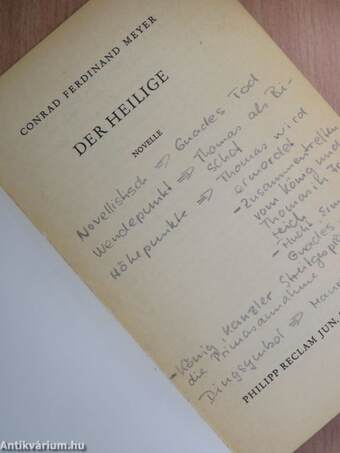 CONRAD FERDINAND MEYER
DER HEILIGE
NOVELLE
Novellistisch ⇒ Gnades Tod
Wendepunkt ⇒ Thomas als Bi-
schof
Höhepunkte ⇒ Thomas wird
ermordet
- Zusammentreffen
vom König und
Thomas in
reich
Gnades
- König, Kanzler Streitgesprä
die Primasannahme
Dingsymbol ⇒
PHILIPP RECLAM JUN.
Antikvárium.hu